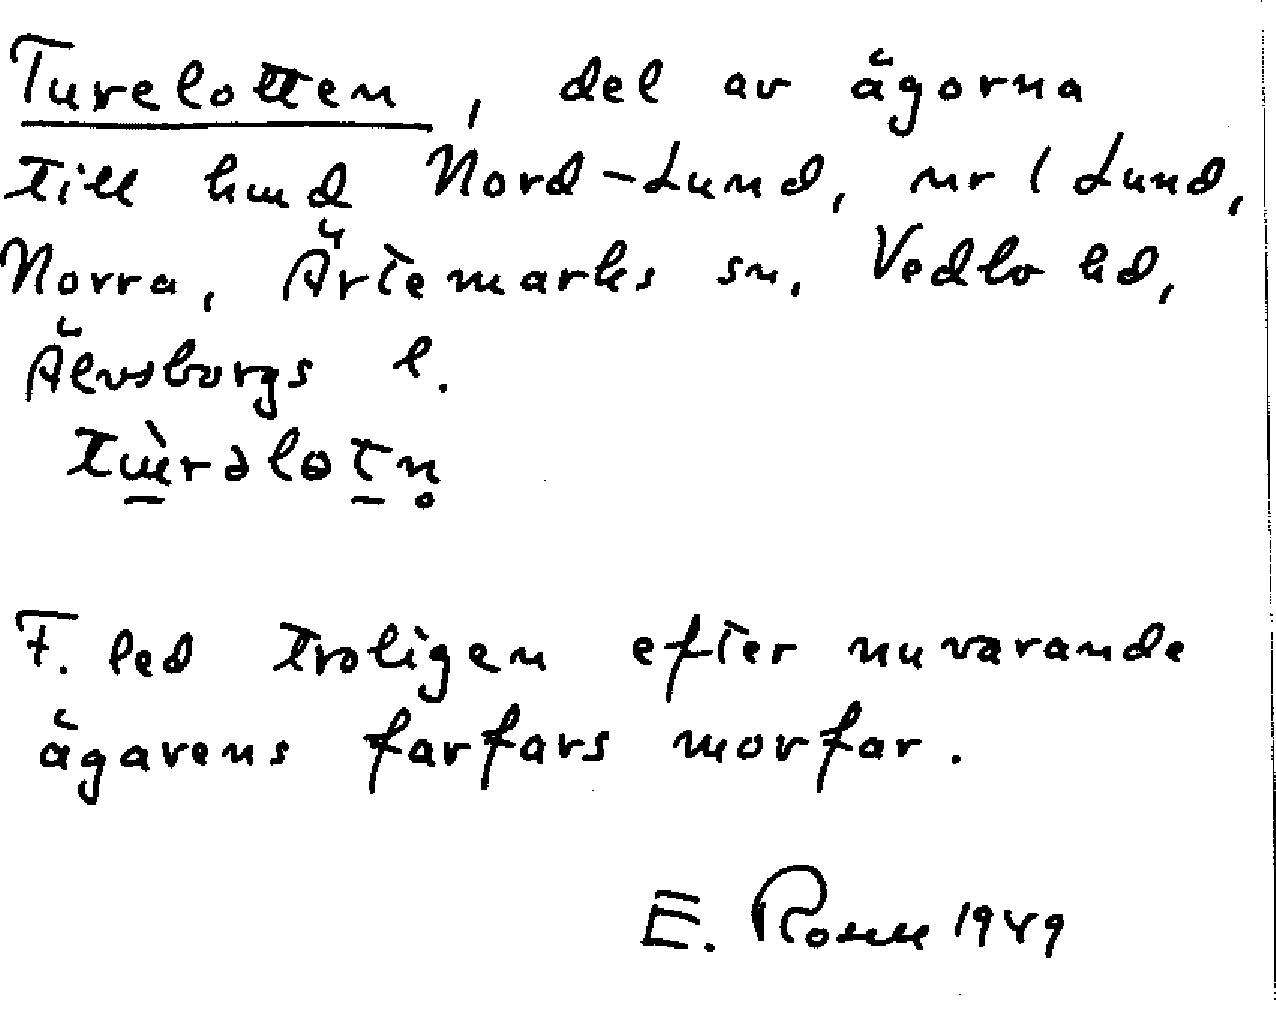 Turelotten, del av ägorna
till hmd Nord-Lund, nr 1 Lund,
Norra, Ärtemarks sn, Vedbo hd,
Älvsborgs l.
tùrəlotn̥
F. led troligen efter nuvarande
ägarens farfars morfar.
E. 1949